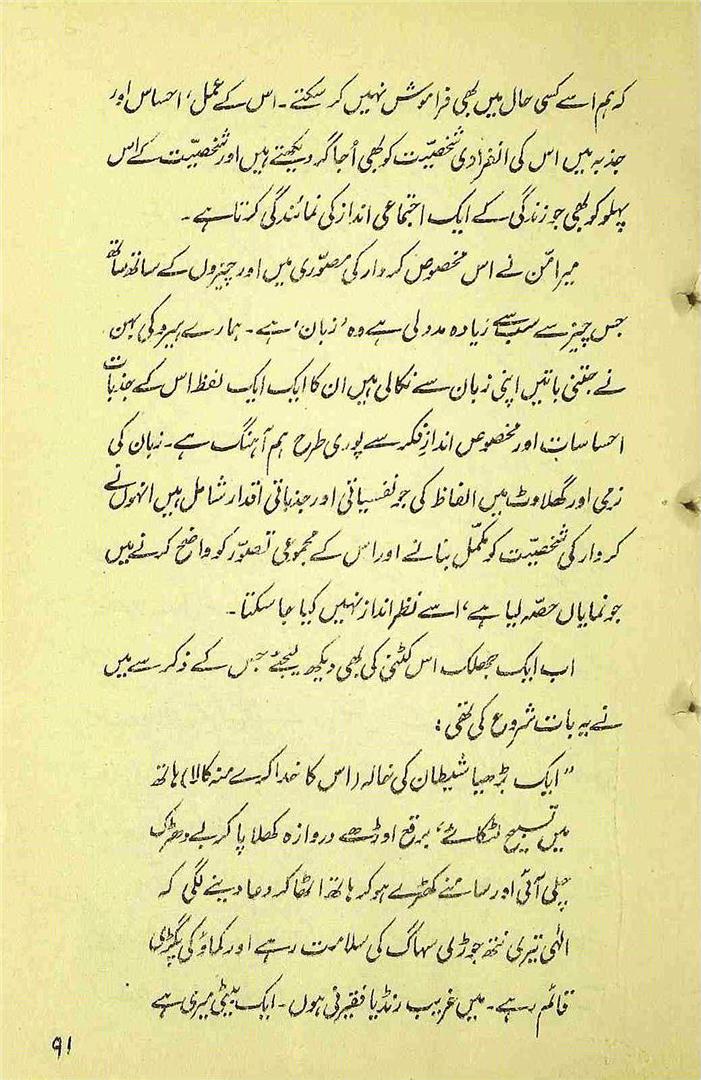 کہ ہم اسے کسی حال میں بھی فراموش نہیں کر سکتے۔ اس کے عمل، احساس اور
جذبہ میں اس کی انفرادی شخصیّت کو بھی اُجاگر دیکھتے ہیں اور شخصیّت کے اس
پہلو کو بھی جو زندگی کے ایک اجتماعی انداز کی نمائندگی کرتا ہے۔
میرامّن نے اس مخصوص کردار کی مصوّری میں اور چیزوں کے ساتھ ساتھ
جس چیز سے سب سے زیادہ مدد لی ہے وہ 'زبان' ہے۔ ہمارے ہیرو کی بہن
نے جتنی باتیں اپنی زبان سے نکالی ہیں ان کا ایک ایک لفظ اس کے جذبات
احساسات اور مخصوص اندازِ فکر سے پوری طرح ہم آہنگ ہے۔ زبان کی
نرمی اور گھلاوٹ میں الفاظ کی جو نفسیاتی اور جذباتی اقدار شامل ہیں انہوں نے
کردار کی شخصیّت کو مکمّل بنانے اور اس کے مجموعی تصوّر کو واضح کرنے میں
جو نمایاں حصّہ لیا ہے، اسے نظرانداز نہیں کیا جا سکتا۔
اب ایک جھلک اس کٹنی کی بھی دیکھ لیجئے جس کے ذکر سے میں
نے یہ بات شروع کی تھی:
"ایک بڑھیا شیطان کی خالہ (اس کا خدا کرے منہ کالا) ہاتھ
میں تسبیح لٹکائے، برقع اوڑھے دروازہ کھلا پا کر بے دھڑک
چلی آئی اور سامنے کھڑے ہو کر ہاتھ اٹھا کر دعا دینے لگی کہ
الٰہی تیری نتھ جوڑی سہاگ کی سلامت رہے اور کماؤ کی پگڑی
قائم رہے۔ میں غریب رنڈیا فقیرنی ہوں۔ ایک بیٹی میری ہے
۹۱